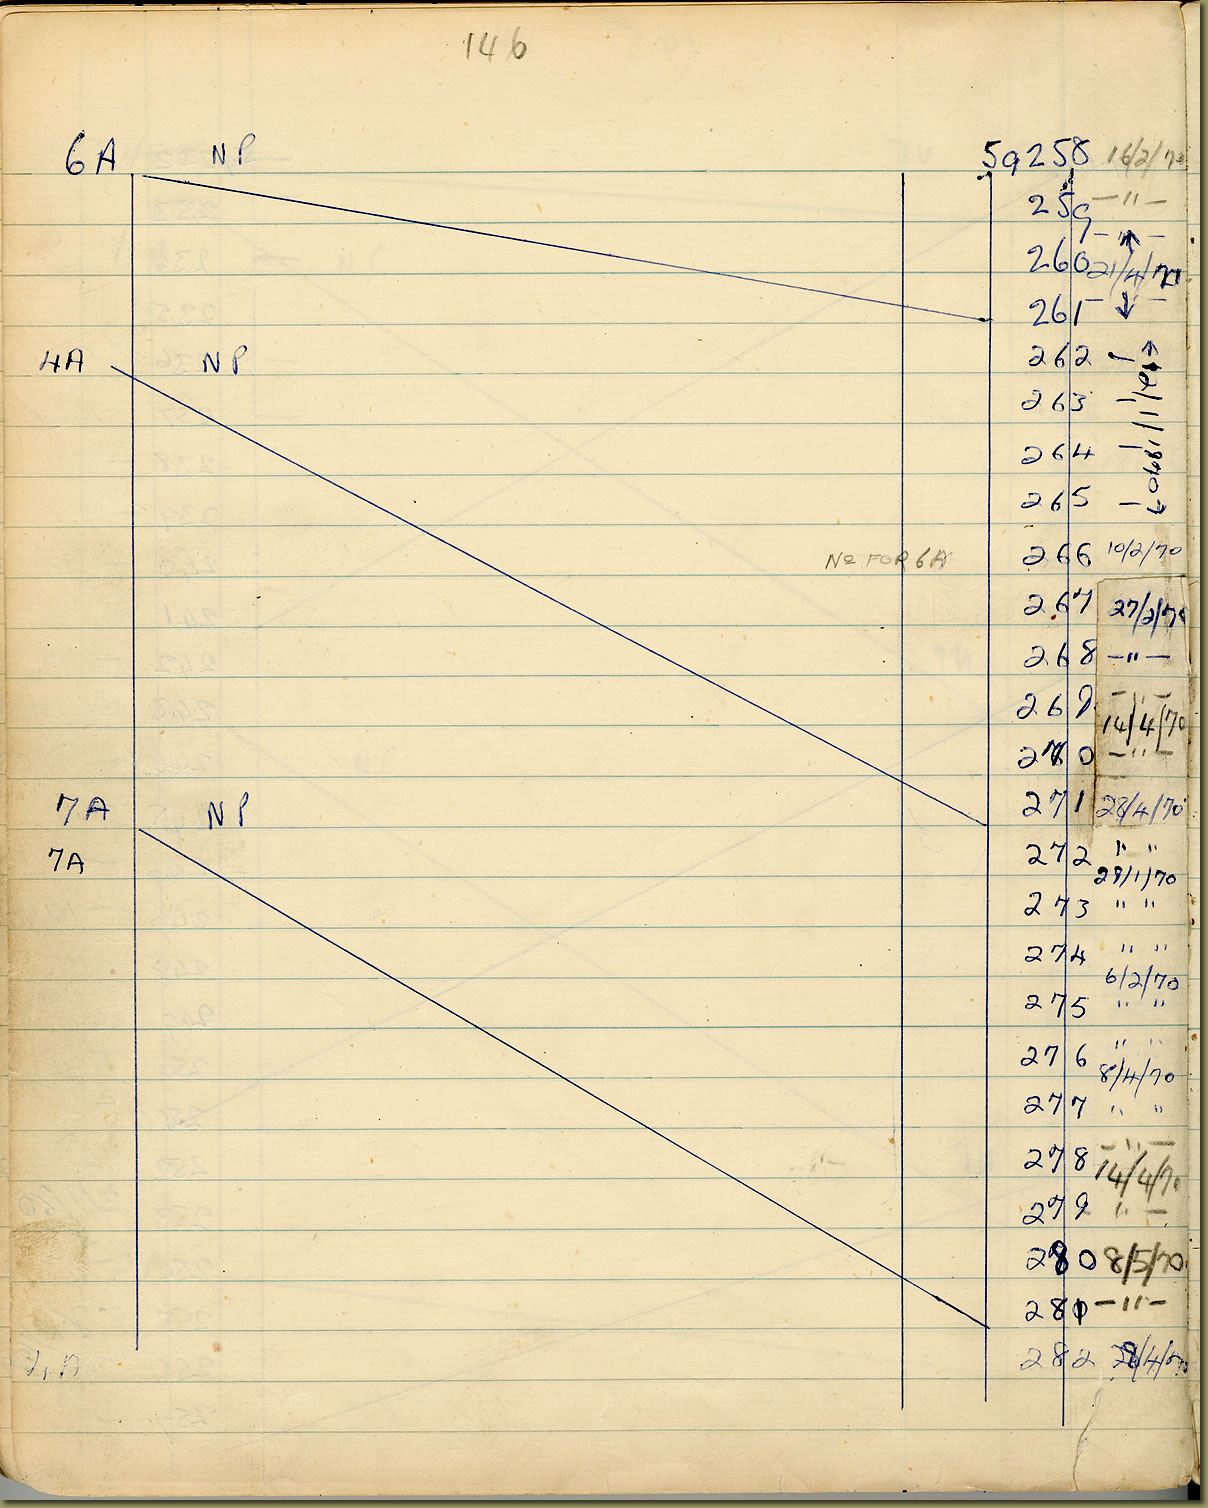 146
6A NP 59258 16/2/70
259 — " —
— " —
260 21/4/70
261 — —
4A NP 262
263
264
265
No FOR 6A 266 10/2/70
267 27/2/70
268 — " —
269 — " —
14/4/70
270 — " —
7A NP 271 28/4/70
7A 272 " "
29/1/70
273 " "
274 " "
6/2/70
275 " "
276 " "
8/4/70
277 " "
278 — " —
14/4/70
279 " —
280 8/5/70
281 — " —
282 28/4/70